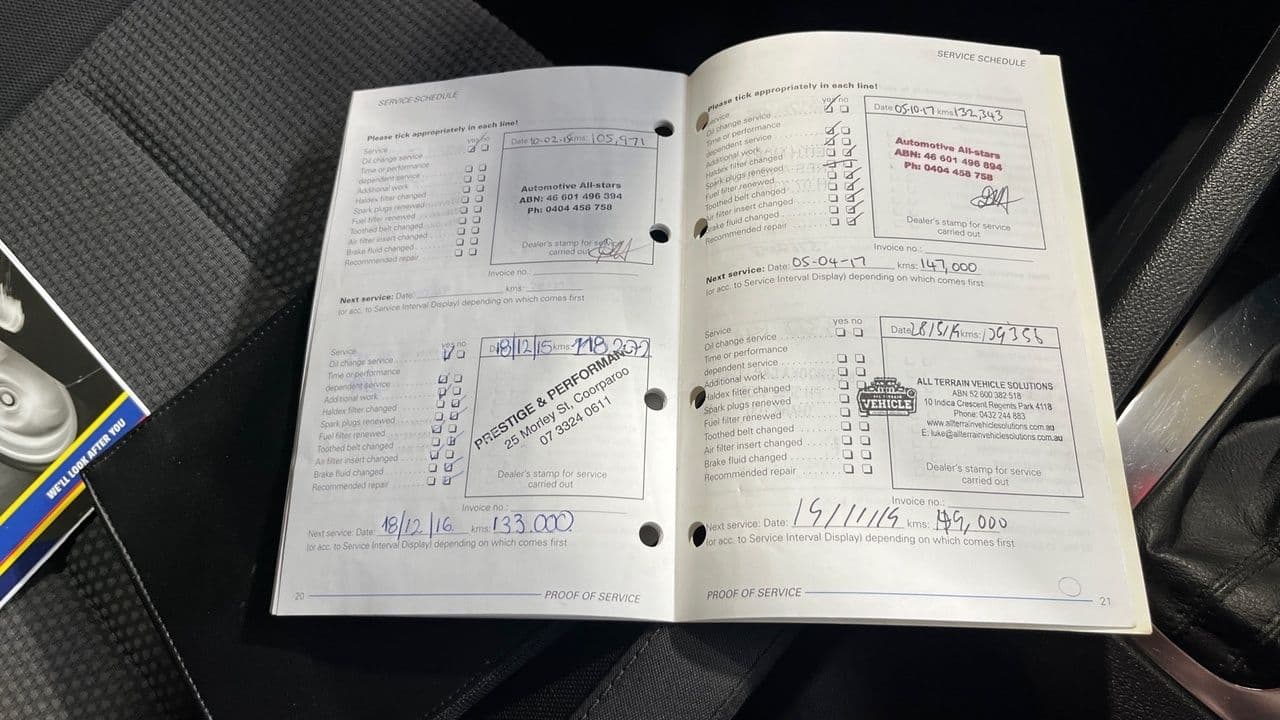 SERVICE SCHEDULE
Please tick appropriately in each line!
yes no
Service
Oil change service
Time or performance
dependent service
Additional work
Haldex filter changed
Spark plugs renewed
Fuel filter renewed
Toothed belt changed
Air filter insert changed
Brake fluid changed
Recommended repair
Date kms: 105,971
Automotive All-stars
ABN: 46 601 496 394
Ph: 0404 458 758
Dealer's stamp for
carried out
Invoice no.:
Next service: Date: kms:
(or acc. to Service Interval Display) depending on which comes first
yes no
Service
Oil change service
Time or performance
dependent service
Additional work
Haldex filter changed
Spark plugs renewed
Fuel filter renewed
Toothed belt changed
Air filter insert changed
Brake fluid changed
Recommended repair
18/12/15 kms:
PRESTIGE & PERFORMAN
25 Morley St, Coorparoo
07 3324 0611
Dealer's stamp for service
carried out
Invoice no.:
Next service: Date: 18/12/16 kms: 133.000
(or acc. to Service Interval Display) depending on which comes first
20
PROOF OF SERVICE
SERVICE SCHEDULE
Please tick appropriately in each line!
yes no
Service
Oil change service
Time or performance
dependent service
Additional work
Haldex filter changed
Spark plugs renewed
Fuel filter renewed
Toothed belt changed
Air filter insert changed
Brake fluid changed
Recommended repair
Date 05-10-17 kms: 132,343
Automotive All-stars
ABN: 46 601 496 894
Ph: 0404 458 758
Dealer's stamp for service
carried out
Invoice no.:
Next service: Date: 05-04-17 kms: 147,000
(or acc. to Service Interval Display) depending on which comes first
yes no
Service
Oil change service
Time or performance
dependent service
Additional work
Haldex filter changed
Spark plugs renewed
Fuel filter renewed
Toothed belt changed
Air filter insert changed
Brake fluid changed
Recommended repair
Date kms:
VEHICLE
ALL TERRAIN VEHICLE SOLUTIONS
ABN 52 600 382 518
10 Indica Crescent Regents Park 4118
Phone: 0432 244 883
www.allterrainvehiclesolutions.com.au
E: luke@allterrainvehiclesolutions.com.au
Dealer's stamp for service
carried out
Invoice no.:
Next service: Date: 19/11/19 kms: 149,000
(or acc. to Service Interval Display) depending on which comes first
PROOF OF SERVICE
21
WE'LL LOOK AFTER YOU